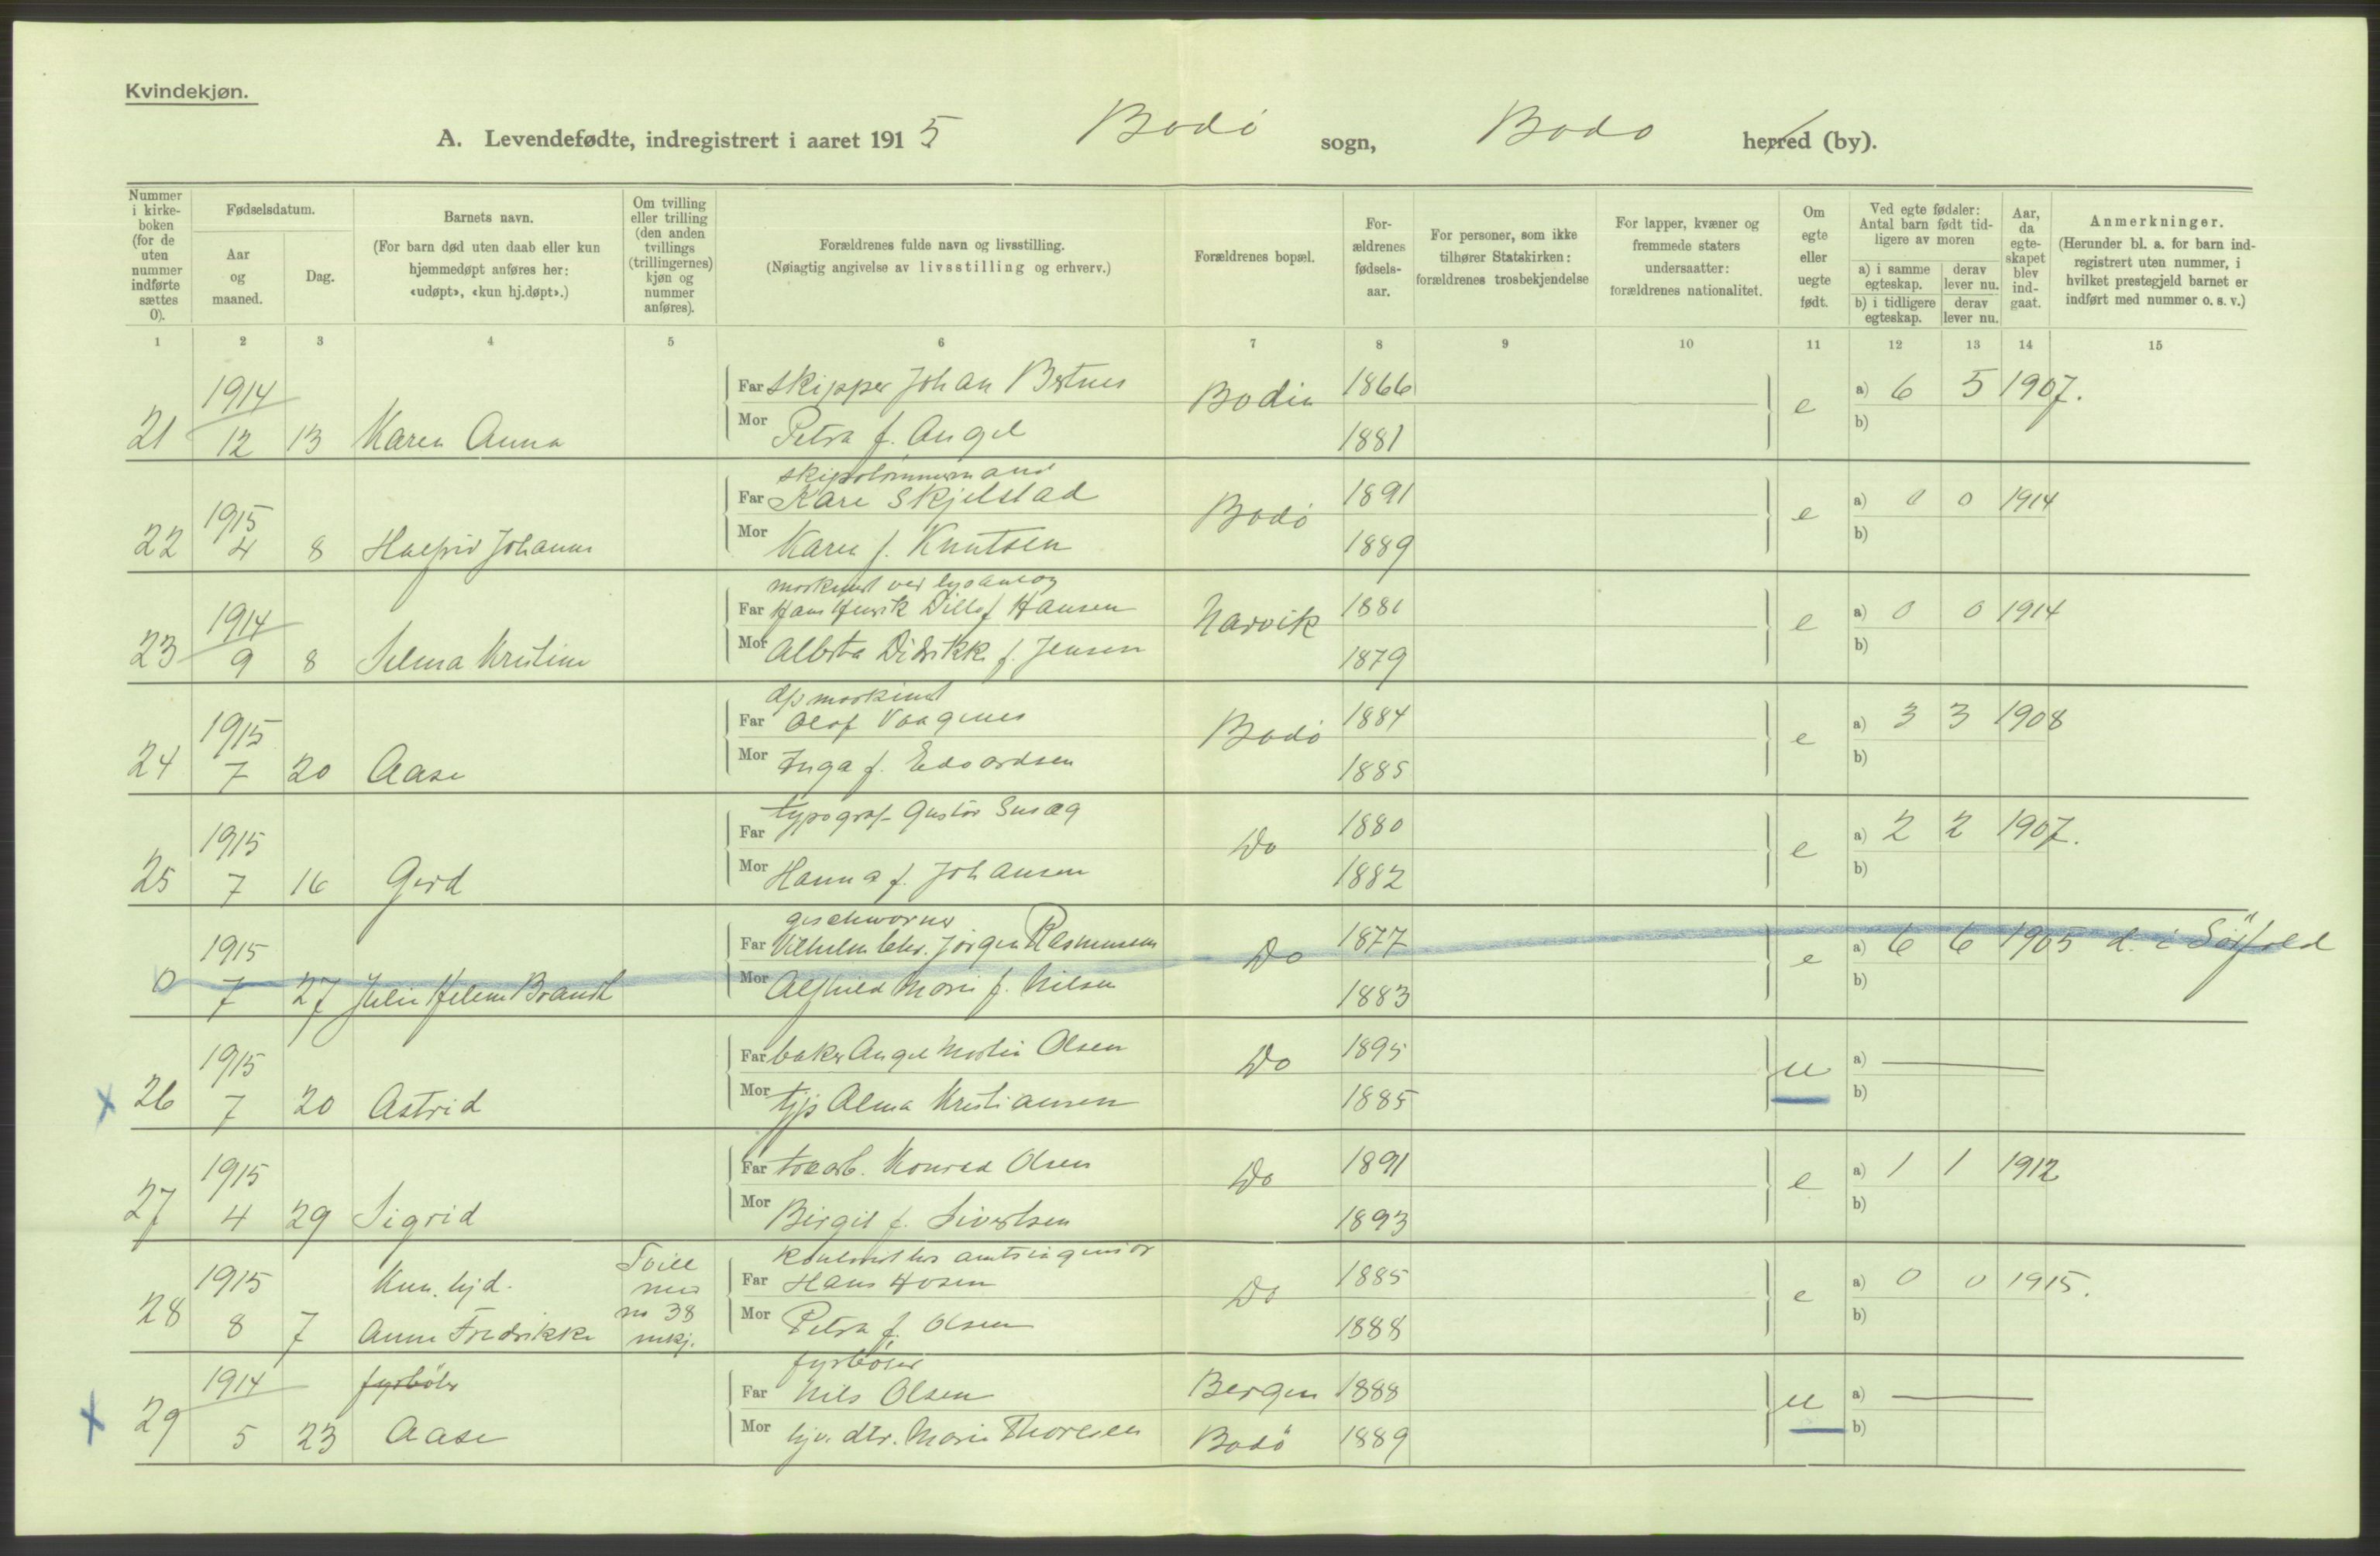 Kvindekjøn.
A. Levendefødte, indregistrert i aaret 1915 Bodø sogn, Bodø herred (by).
Nummer i kirkeboken (for de uten nummer indførte sættes 0).
Fødselsdatum.
Aar og maaned.
Dag.
Barnets navn.
(For barn død uten daab eller kun hjemmedøpt anføres her: «udøpt», «kun hj.døpt».)
Om tvilling eller trilling (den anden tvillings (trillingernes) kjøn og nummer anføres).
Forældrenes fulde navn og livsstilling.
(Nøiagtig angivelse av livsstilling og erhverv.)
Forældrenes bopæl.
Forældrenes fødselsaar.
For personer, som ikke tilhører Statskirken: forældrenes trosbekjendelse
For lapper, kvæner og fremmede staters undersaatter: forældrenes nationalitet.
Om egte eller uegte født.
Ved egte fødsler: Antal barn født tidligere av moren
a) i samme egteskap.
derav lever nu.
b) i tidligere egteskap.
derav lever nu.
Aar, da egteskapet blev indgaat.
Anmerkninger.
(Herunder bl. a. for barn indregistrert uten nummer, i hvilket prestegjeld barnet er indført med nummer o. s. v.)
1 2 3 4 5 6 7 8 9 10 11 12 13 14 15
1914 Far skipper Johan Bertnes Bodin 1866 e a) 6 5 1907.
21 12 13 Karen Anna Mor Petra f. Angel 1881 b)
skipstømmermand
1915 Far Kåre Skjelstad Bodø 1891 e a) 0 0 1914
22 4 8 Johanne Mor Karen f. Knutsen 1889 b)
maskinist ved lysanlæg
1914 Far Hans Henrik Hansen Narvik 1881 e a) 0 0 1914
23 9 8 Selma Kristine Mor Alberta Didrikke f. Jensen 1879 b)
dps maskinist
1915 Far Olaf Vaagenes Bodø 1884 e a) 3 3 1908
24 7 20 Aase Mor Inga f. Edvardsen 1885 b)
typograf Gustav
1915 Far Do 1880 e a) 2 2 1907.
25 7 16 Gerd Mor Hanna f. Johansen 1882 b)
geschworner
1915 Far Vilhelm Chr. Jørgen Rasmussen Do 1877 e a) 6 6 1905 d. i Sørfold
0 7 27 Julie Helene Brandt Mor Alfhild Marie f. Nilsen 1883 b)
1915 Far baker Angel Martin Olsen Do 1895 u a)
x 26 7 20 Astrid Mor tjp Alma Kristiansen 1885 b)
1915 Far træarb. Konrad Olsen Do 1891 e a) 1 1 1912
27 4 29 Sigrid Mor Birgit f. Sivertsen 1893 b)
Tvill kontorist hos amtsingeniør
1915 Kun. hjd. med Far Hans Hosen Do 1885 e a) 0 0 1915.
28 8 7 Anne Fredrikke no 38 mkj. Mor Petra f. Olsen 1888 b)
fyrbøter
1914 fyrbøter Far Nils Olsen Bergen 1888 u a)
x 29 5 23 Aase Mor hjv. dtr. Marie Thoresen Bodø 1889 b)